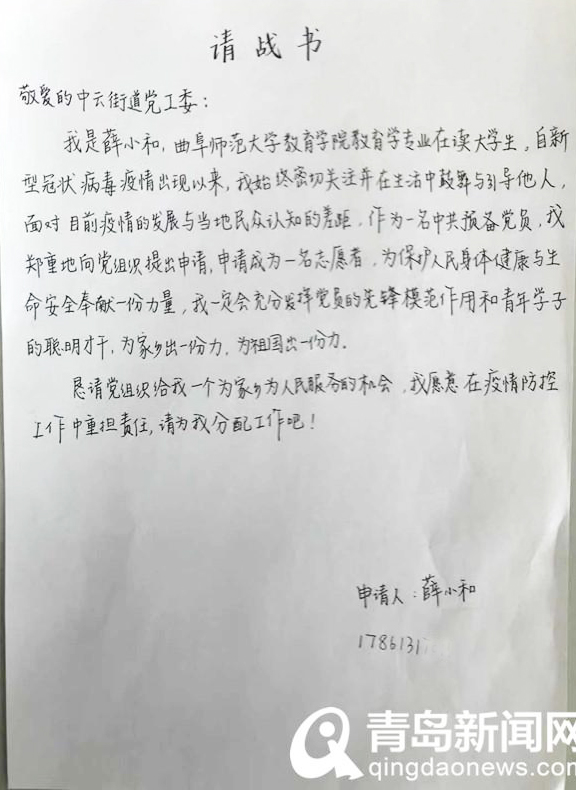 请战书
敬爱的中云街道党工委：
我是薛小和，曲阜师范大学教育学院教育学专业在读大学生，自新
型冠状病毒疫情出现以来，我始终密切关注并在生活中鼓舞与引导他人，
面对目前疫情的发展与当地民众认知的差距，作为一名中共预备党员，我
郑重地向党组织提出申请，申请成为一名志愿者，为保护人民身体健康与生
命安全奉献一份力量，我一定会充分发挥党员的先锋模范作用和青年学子
的聪明才干，为家乡出一份力，为祖国出一份力。
恳请党组织给我一个为家乡为人民服务的机会，我愿意在疫情防控
工作中重担责任，请为我分配工作吧！
申请人：薛小和
1786131
青岛新闻网
qingdaonews.com